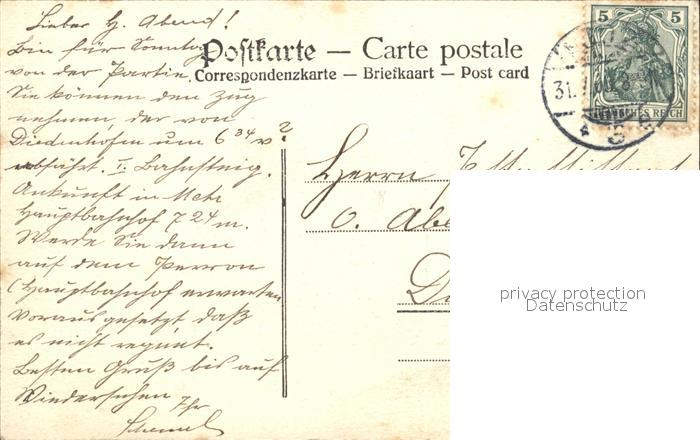 Lieber H. Abend!
Bin für Sonntag
von der Partie.
Sie können den Zug
nehmen, der von
Diedenhofen um 6 34 v
abfährt. I. Bahnsteig.
Ankunft in Metz
Hauptbahnhof 7 24 m.
Werde Sie dann
auf dem Perron
(Hauptbahnhof erwarten
vorausgesetzt, daß
es nicht regnet.
Besten Gruß bis auf
Wiedersehen
Ihr
Postkarte — Carte postale
Correspondenzkarte — Briefkaart — Post card
5 5
DEUTSCHES REICH
31.
Herrn
O. Abe
D
privacy protection
Datenschutz